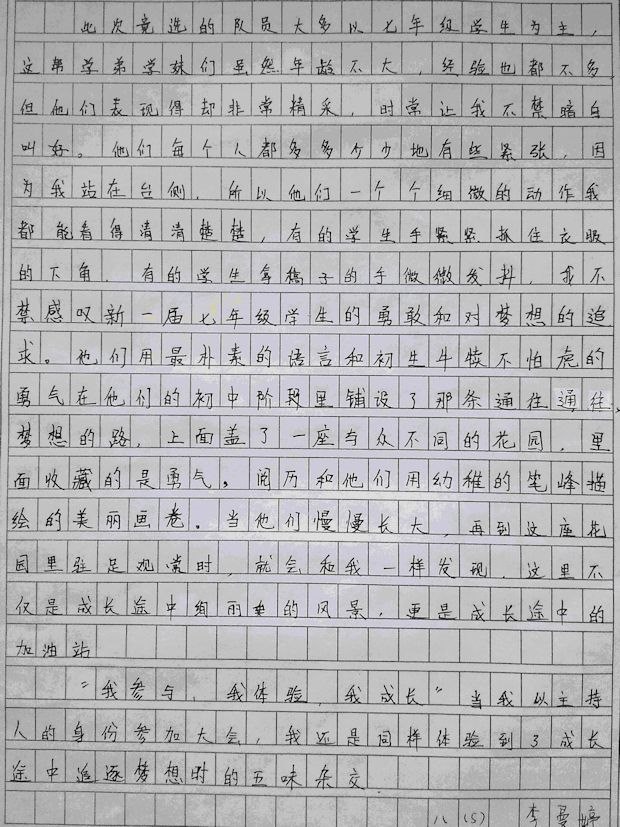 此次竞选的队员大多以七年级学生为主，
这帮学弟学妹们虽然年龄不大，经验也都不多
但他们表现得却非常精采，时常让我不禁暗自
叫好。他们每个人都多多少少地有些紧张，因
为我站在台侧，所以他们一个个细微的动作我
都能看得清清楚楚，有的学生手紧紧抓住衣服
的下角，有的学生拿稿子的手微微发抖，我不
禁感叹新一届七年级学生的勇敢和对梦想的追
求。他们用最朴素的语言和初生牛犊不怕虎的
勇气在他们的初中阶段里铺设了那条通往通往
梦想的路，上面盖了一座与众不同的花园，里
面收藏的是勇气。阅历和他们用幼稚的笔峰描
绘的美丽画卷。当他们慢慢长大，再到这座花
园里驻足观赏时，就会和我一样发现，这里不
仅是成长途中绚丽的风景，更是成长途中的
加油站
"我参与，我体验，我成长"当我以主持
人的身份参加大会，我还是同样体验到了成长
途中追逐梦想时的五味杂交
八(5) 李曼婷